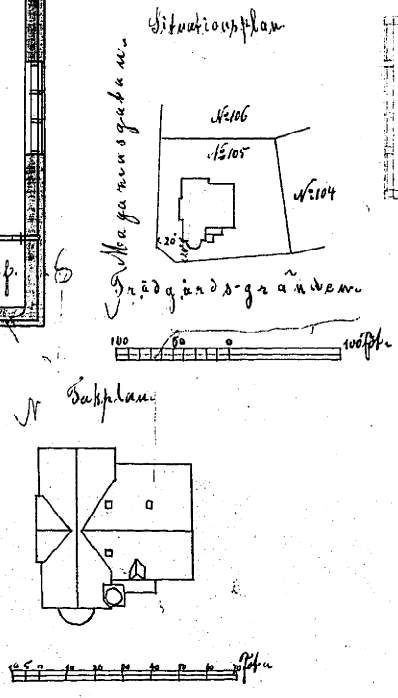 Situationsplan.
Magasinsgatan.
№106
№105
№104
20'
Trädgårds-gränden.
100 50 0 100 föt.
N Takplan.